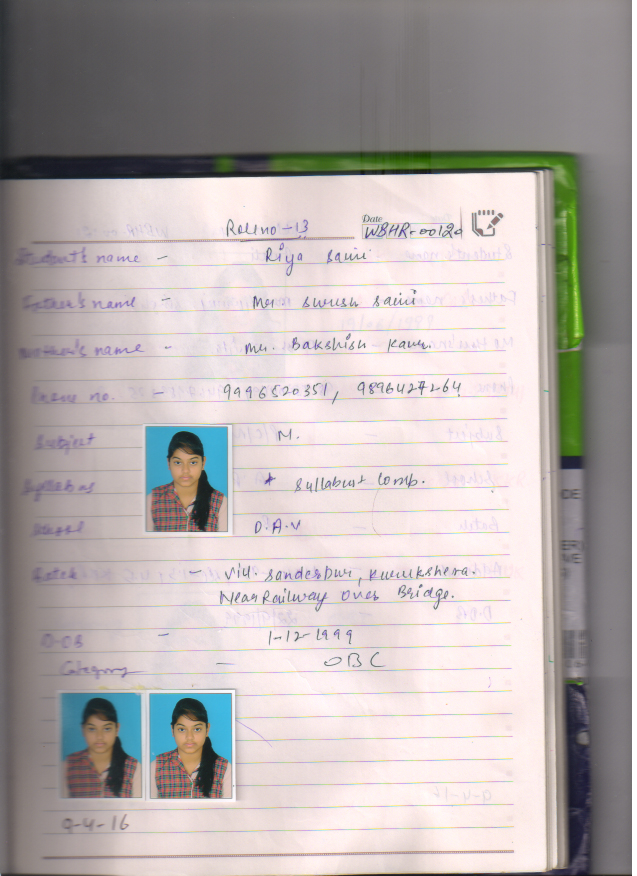 Roll no - 13
Date WBHR-0012
Student's name - Riya Saini
Father's name - Mr. Suresh Saini
Mother's name - Mrs. Bakshish Kaur.
Phone no. - 9996520351, 9896427264
Subject M.
Syllabus + Syllabus + Comp.
School D.A.V
Batch - Vill. Sunderpur, Kurukshetra.
Near Railway Over Bridge.
D-OB - 1-12-1999
Category - OBC
9-4-16